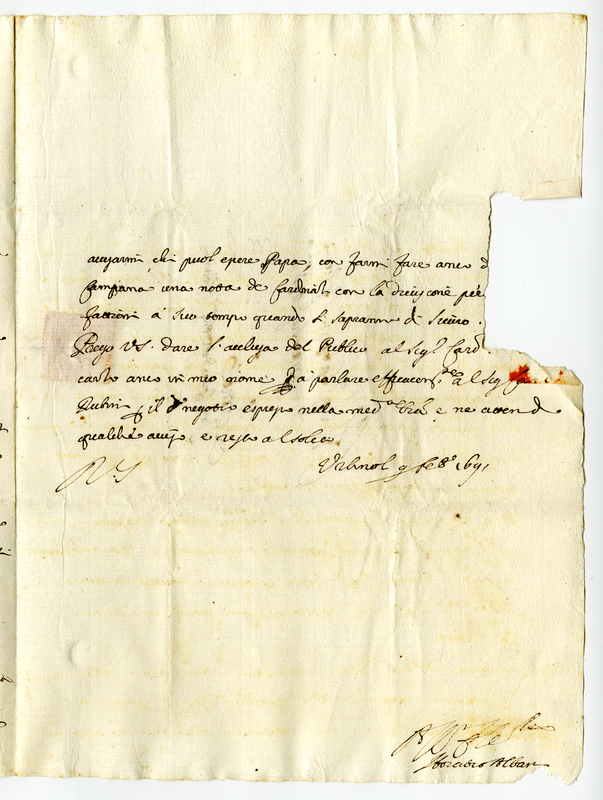 avvisarmi chi puol essere Papa, con farmi fare anco d
Campana una notta de Cardinali con la divisione per
fattioni à suo tempo quando si sapranno di sicuro.
Prego V.S. dare l'acclusa del Publico al Sig.r Card
carlo anco in mio nome à parlare al Sig
Rubini il negotio espresso nella med.a e ne attend
qualche aviso e resto al solito
D V S Urbino li 9 feb.o 1691
Horatio Alban